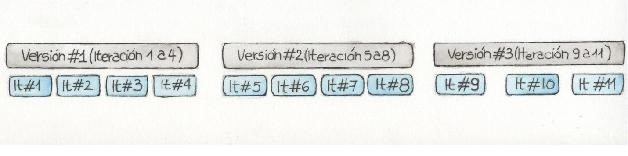 Versión #1 (Iteración 1 a 4)
It#1 It#2 It#3 It#4
Versión #2 (Iteración 5 a 8)
It#5 It#6 It#7 It#8
Versión #3 (Iteración 9 a 11)
It#9 It#10 It#11